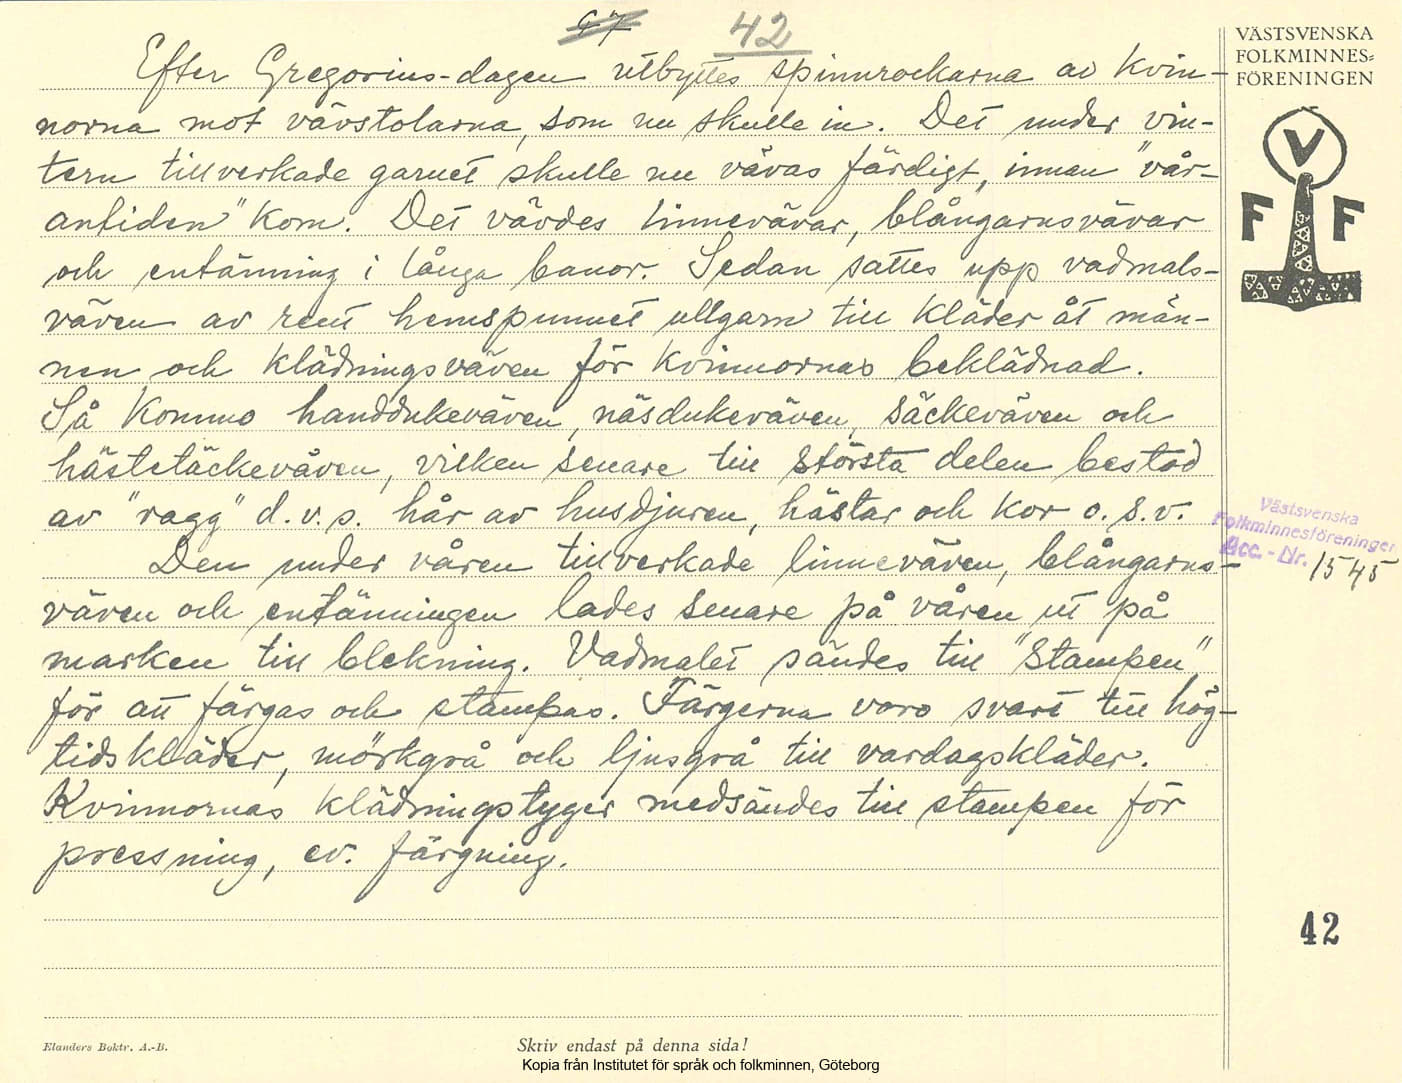 47 42
Efter Gregorius-dagen utbyttes spinnrockarna av kvin-
norna mot vävstolarna, som nu skulle in. Det under vin-
tern tillverkade garnet skulle nu vävas färdigt, innan "vår-
antiden" kom. Det vävdes linnevävar, blångarnsvävar
och entänning i långa banor. Sedan sattes upp vadmals-
väven av rent hemspunnet ullgarn till kläder åt män-
nen och klädningsväven för kvinnornas beklädnad.
Så kommo handdukeväven, näsdukeväven, säckeväven och
hästetäckeväven, vilken senare till största delen bestod
av "ragg" d.v.s. hår av husdjuren, hästar och kor o.s.v.
Den under våren tillverkade linneväven, blångarns-
väven och entänningen lades senare på våren ut på
marken till blekning. Vadmalet sändes till "Stampen"
för att färgas och stampas. Färgerna voro svart till hög-
tidskläder, mörkgrå och ljusgrå till vardagskläder.
Kvinnornas klädningstyger medsändes till stampen för
pressning, ev. färgning.
VÄSTSVENSKA
FOLKMINNES=
FÖRENINGEN
V
F F
Västsvenska
Folkminnesföreningen
Acc.-Nr. 1545
42
Elanders Boktr. A.-B.
Skriv endast på denna sida!
Kopia från Institutet för språk och folkminnen, Göteborg